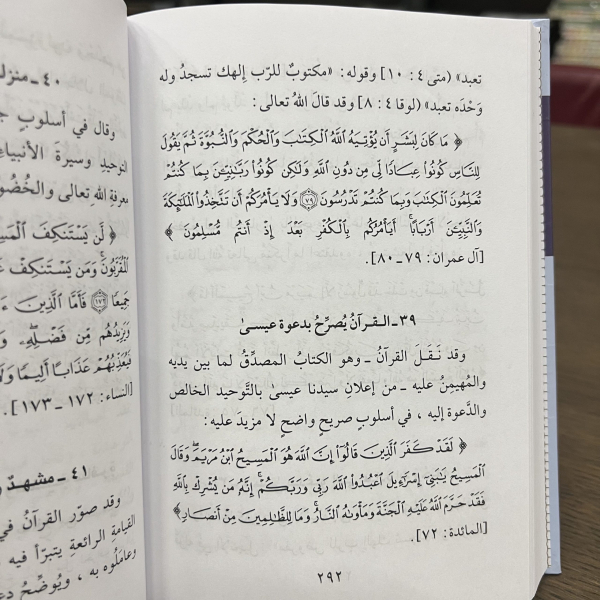 تعبد» (متى ٤ : ١٠] وقوله: «مكتوبٌ للرّب إلهك تسجدُ وله
وَحْدَه تعبد» (لوقا ٤ : ٨] وقد قالَ اللهُ تعالى :
﴿ مَا كَانَ لِبَشَرٍ أَن يُؤْتِيَهُ اللَّهُ الْكِتَٰبَ وَالْحُكْمَ وَالنُّبُوَّةَ ثُمَّ يَقُولَ
لِلنَّاسِ كُونُوا عِبَادًا لِّي مِن دُونِ اللَّهِ وَلَٰكِن كُونُوا رَبَّٰنِيِّـۧنَ بِمَا كُنتُمْ
تُعَلِّمُونَ الْكِتَٰبَ وَبِمَا كُنتُمْ تَدْرُسُونَ ٧٩ وَلَا يَأْمُرَكُمْ أَن تَتَّخِذُوا الْمَلَٰٓئِكَةَ
وَالنَّبِيِّـۧنَ أَرْبَابًا ۗ أَيَأْمُرُكُم بِالْكُفْرِ بَعْدَ إِذْ أَنتُم مُّسْلِمُونَ ﴾
[آل عمران : ٧٩ ـ ٨٠].
٣٩ ـ القرآنُ يُصرِّحُ بدعوة عيسىٰ
وقد نَقَلَ القرآنُ ـ وهو الكتابُ المصدِّقُ لما بين يديه
والمُهيمِنُ عليه ـ من إعلانِ سيدنا عيسىٰ بالتَّوحيد الخالص
والدَّعوة إليه ، في أسلوبٍ صريحٍ واضحٍ لا مزيدَ عليه :
﴿ لَقَدْ كَفَرَ الَّذِينَ قَالُوٓا إِنَّ اللَّهَ هُوَ الْمَسِيحُ ابْنُ مَرْيَمَ ۖ وَقَالَ
الْمَسِيحُ يَٰبَنِيٓ إِسْرَٰٓءِيلَ اعْبُدُوا اللَّهَ رَبِّي وَرَبَّكُمْ ۖ إِنَّهُ مَن يُشْرِكْ بِاللَّهِ
فَقَدْ حَرَّمَ اللَّهُ عَلَيْهِ الْجَنَّةَ وَمَأْوَىٰهُ النَّارُ ۖ وَمَا لِلظَّٰلِمِينَ مِنْ أَنصَارٍ ﴾
[المائدة : ٧٢].
٢٩٢
٤٠ ـ منزلـ
وقال في أسلوب
التوحيدِ وسيرة الأنبياء
معرفة الله تعالى والخُضُو
﴿ لَّن يَسْتَنكِفَ الْمَسِـ
الْمُقَرَّبُونَ ۚ وَمَن يَسْتَنكِفْ عَـ
جَمِيعًا ١٧٢ فَأَمَّا الَّذِينَ ءَا
وَيَزِيدُهُم مِّن فَضْلِهِ ۖ وَ
فَيُعَذِّبُهُمْ عَذَابًا أَلِيمًا وَلَا
[النساء : ١٧٢ ـ ١٧٣].
٤١ ـ مشهدٌ
وقد صوّر القرآنُ في
القيامةِ الرائعةِ يتبرأ فيه
وعامَلُوه به ، ويُوضِّحُ دعـ